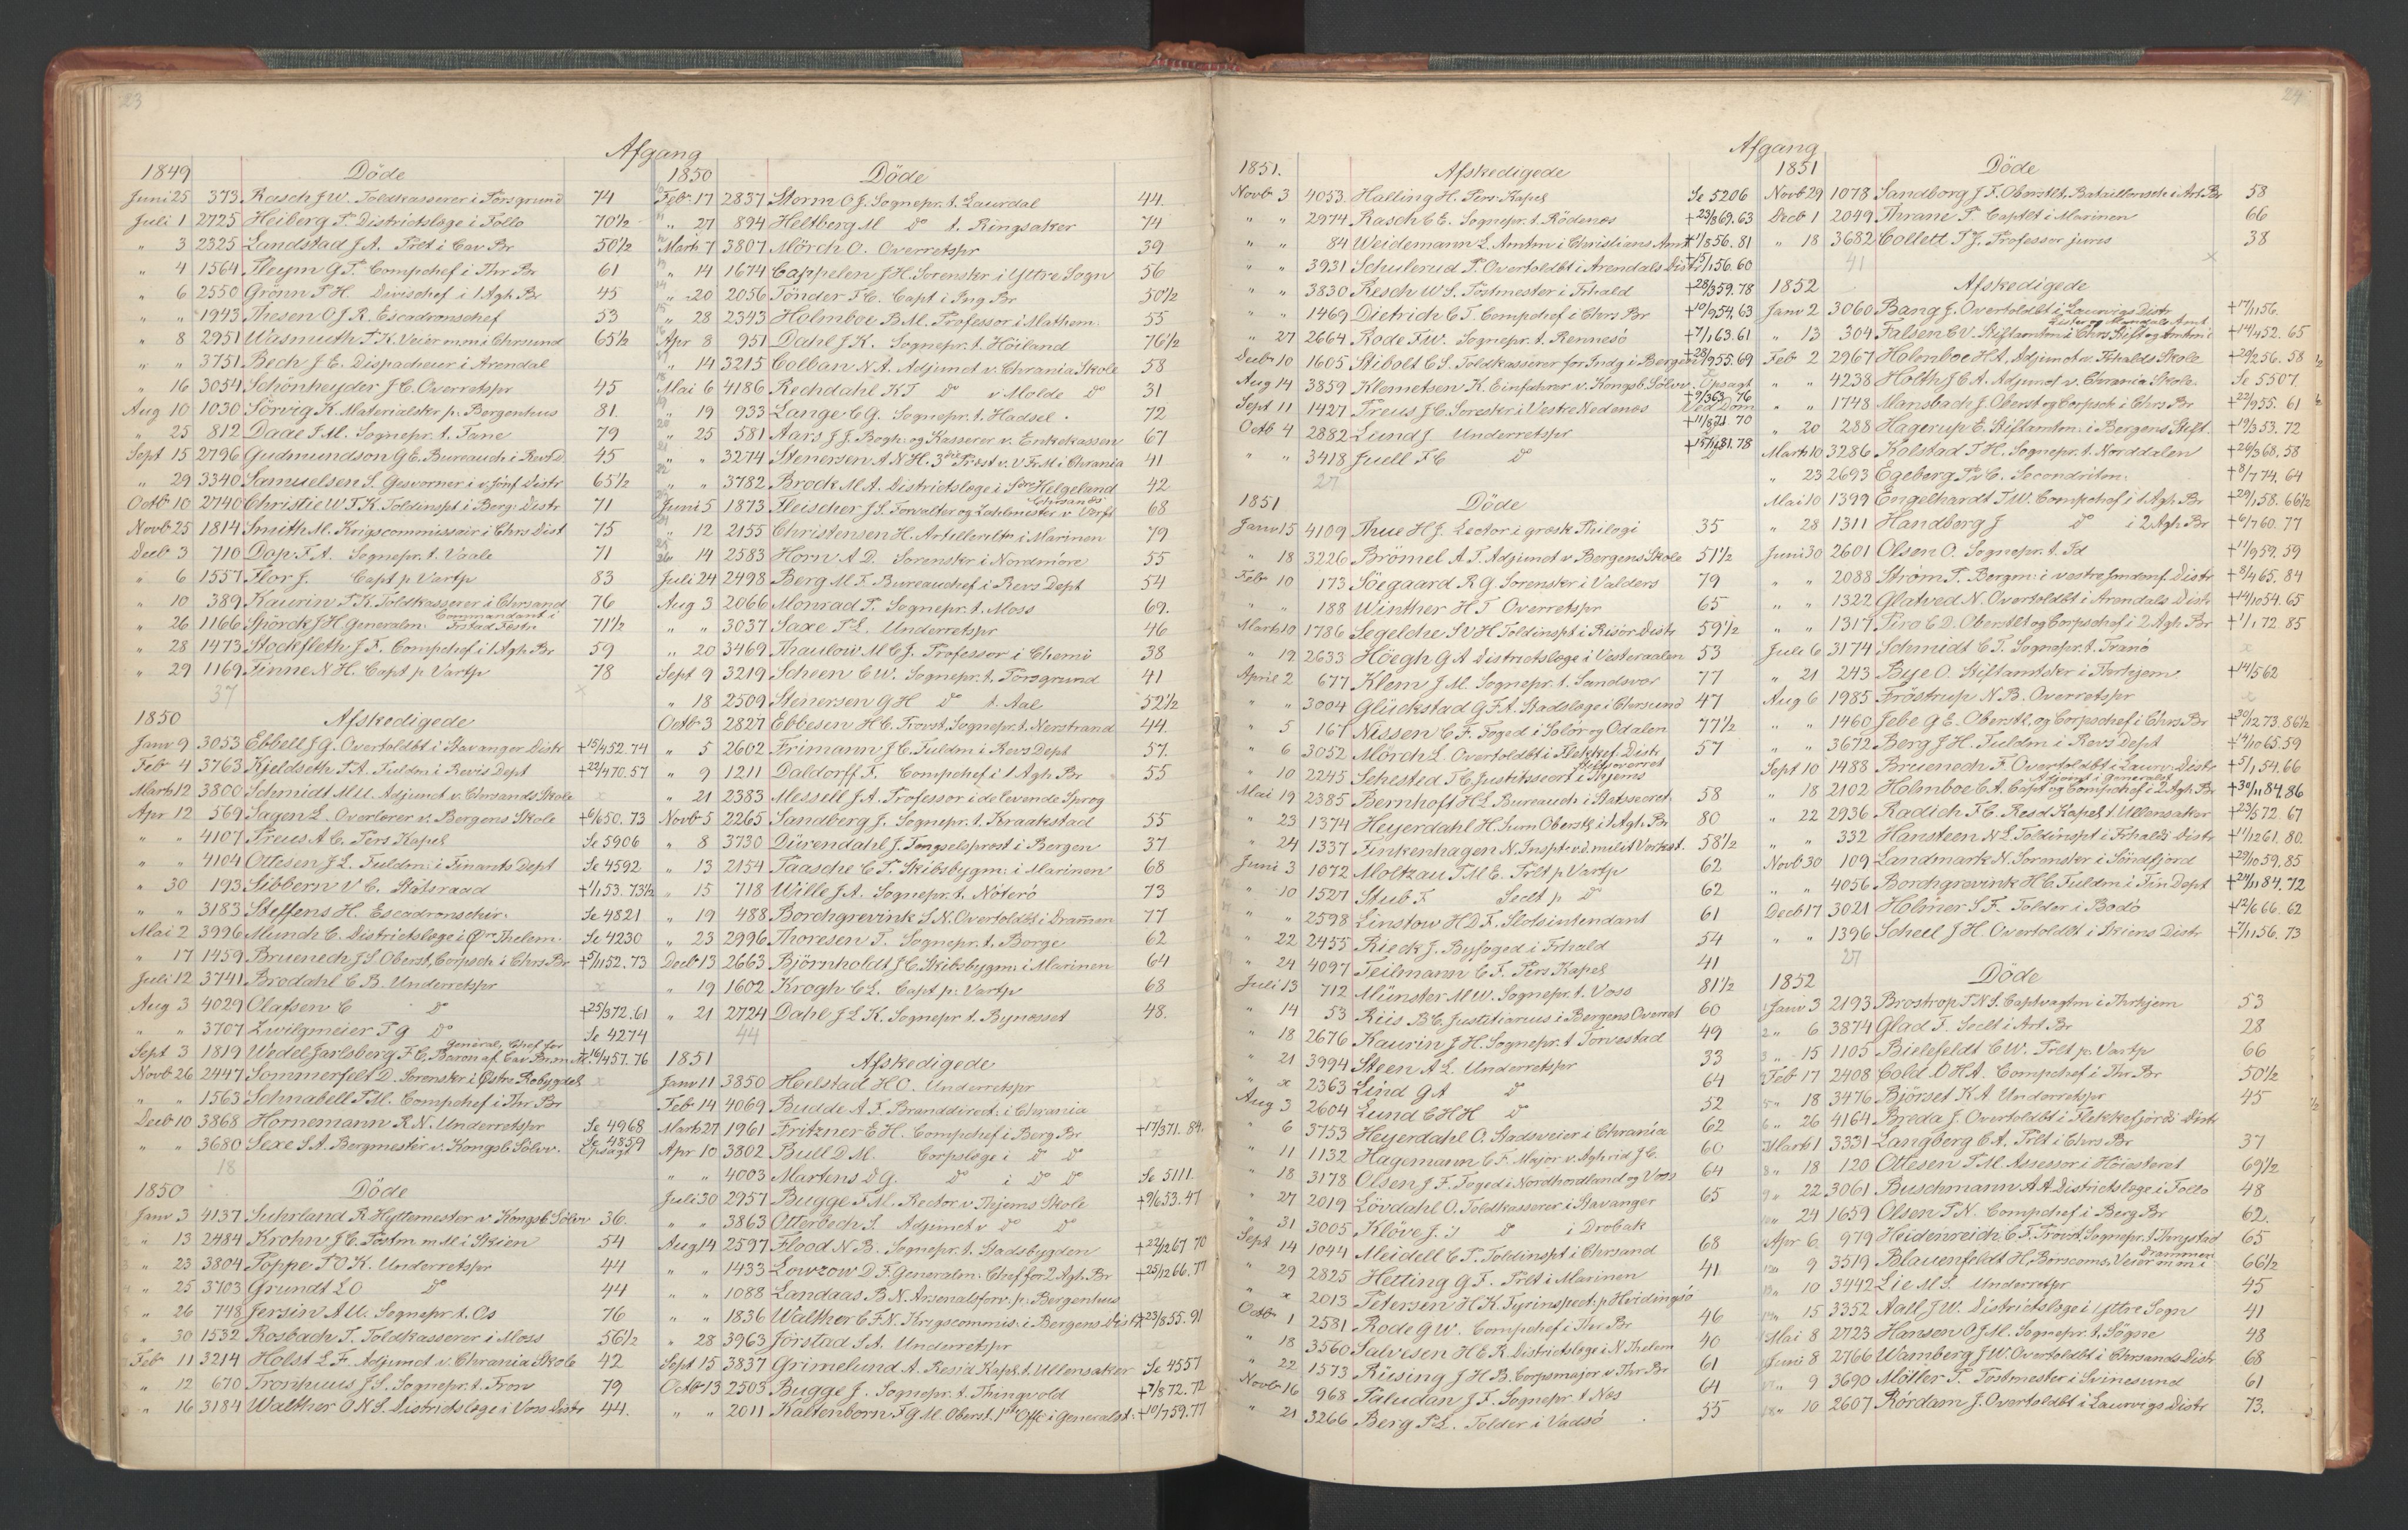 23
Afgang
1849 Döde
Juni 25 373 Rasch J W. Toldkasserer i Porsgrund 74
Juli 1 2725 Heiberg P. Districtslæge i Follo 70½
" 3 2325 Landstad J A. Prlt i Cav Br 50½
" 4 1564 Pleym G P. Compchef i Thr Br 61
" 6 2550 Grönn P H. Divischef i 1 Agh Br 45
" " 1943 Thesen O J R. Escadronschef 53
" 8 2951 Wasmuth P K. Veier m.m i Chrsund 65½
" " 3751 Bech J E. Dispacheur i Arendal
" 16 3054 Schönheyder J C. Overretspr 45
Aug 10 1030 Sörvig K. Materialskr p. Bergenhus 81.
" 25 812 Daae J M. Sognepr. t. Fane 79
Sept 15 2796 Gudmundson G E. Bureauch i RevD. 45
" 29 3340 Samuelsen S. Gesvorner i v. Jönf Distr 65½
Octb 10 2740 Christie W F K. Toldinspt i Berg: Distr 71
Novb 25 1814 Smith M. Krigscommissair i Chrs Dist 75
Decb 3 710 Dop F A. Sognepr. t. Vaale 71
" 6 1557 Flor J. Capt p Vartp 83
" 10 389 Kaurin P K. Toldkasserer i Chrsand 76
" 26 1166 Spörck J H. Generalm. Commandant i Frstad Festn 71½
" 28 1473 Stockfleth J F. Compchef i 1 Agh Br 59
" 29 1169 Finne N H. Capt p Vartp 78
37 x
1850 Afskedigede
Janv 9 3053 Ebbell J G. Overtoldbt i Stavanger Distr +15/4 52. 74
Feb 4 3763 Kjeldseth P A. Fuldm i Revis Dept +22/4 70. 57
Marts 12 3800 Schmidt M U. Adjunct v. Chrsands Skole x
Apr 12 569 Sagen L. Overlærer v. Bergens Skole +6/6 50. 73
" " 4107 Preus A C. Pers Kapel Se 5906
" " 4104 Ottesen J L. Fuldm: i Finants Dept Se 4592
" 30 193 Sibbern V C. Statsraad +1/1 53. 73½
" " 3183 Steffens H. Escadronschir. Se 4821
Mai 2 3996 Munch C. Districtslæge i Ø: Thelem. Se 4230
" 17 1459 Bruenech J S. Oberst, Corpsch i Chrs Br +5/11 52. 73
Juli 12 3741 Brodahl C B. Underretspr x
Aug 3 4029 Olafsen C do +25/3 72. 61
" " 3707 Zwilgmeier P G do Se 4274
Sept 3 1819 Wedel Jarlsberg F C, Baron af. General, Chef for Cav Br. m M. +16/4 57. 76
Novb 26 2447 Sommerfelt D. Sorenskr i Østre Robygdel x
" " 1563 Schnabell P M. Compchef i Thr Br x
Decb 10 3868 Hornemann R N. Underretspr Se 4968
" " 3680 Sexe S A. Bergmester v. Kongsb Sölvv. Se 4859 Opsagt
18
1850 Döde
Janv 3 4137 Suhrland R. Hyttemester v. Kongsb Sölvv 36.
" 13 2484 Krohn J C. Postm m M i Skien 54
" 23 3804 Poppe P O K. Underretspr 44
" 25 3703 Grundt L O do 44
" 26 748 Jersin A U. Sognepr. t. Os 76
" 30 1532 Rosbach P. Toldkasserer i Moss 56½
Feb 11 3214 Holst L F. Adjunct v. Chrania Skole 42
" 12 670 Tronhuus J S. Sognepr. t. Fron 79
" 16 3184 Walther O N S. Districtslæge i Voss Distr 44.
1850 Döde
Feb 17 2837 Storm O J. Sognepr. t. Laurdal 44.
" 27 894 Heltberg M do t. Ringsaker 74
Marts 7 3807 Mörch O. Overretspr 39
" 14 1674 Cappelen J H. Sorenskr. i Yttre Sogn 56
" 20 2056 Tönder F C. Capt i Ing Br 50½
" 28 2343 Holmboe B M. Professor i Mathem: 55
Apr 8 951 Dahl J K. Sognepr. t. Höiland 76½
" 14 3215 Colban N A. Adjunct v. Chrania Skole 58
Mai 6 4186 Rechdahl K J do v Molde do 31
" 19 933 Lange C G. Sognepr. t. Hadsel. 72
" 25 581 Aars J J. Bogh: og Kasserer v. Enkekassen 67
" " 3274 Stenersen A N H. 3die Præst v. V F. M i Chrania 41
" " 3782 Brock M A. Districtslæge i Söre Helgeland 42
Juni 5 1873 Fleischer J S. Forvalter og Zahlmester v. Chrsands Verft 68
" 12 2155 Christensen H. Artillerilt i Marinen 79
" 14 2583 Horn A D. Sorenskr i Nordmöre 55
Juli 24 2498 Berg M F. Bureauchef i Revs Dept 54
Aug 3 2066 Monrad P. Sognepr. t. Moss 69.
" " 3037 Saxe P L. Underretspr 46
" 20 3469 Thaulow M C J. Professor i Chemi 38
Sept 9 3219 Scheen C W. Sognepr. t. Porsgrund 41
" 18 2509 Stenersen G H do t. Aal 52½
Octb 3 2827 Ebbesen H C. Provst, Sognepr. t. Nerstrand 44.
" 5 2602 Frimann J C. Fuldm i Revs Dept 57.
" 9 1211 Daldorff F. Compchef i 1 Agh Br 55
" 21 2383 Messell J A. Professor i de levende Sprog
Novb 5 2265 Sandberg J. Sognepr. t. Kraakstad 55
" 8 3730 Dürendahl J. Fængselsprest i Bergen 37
" 13 2154 Paasche C P. Skibsbygm: i Marinen 68
" 15 718 Wille J A. Sognepr. t. Nöterö 73
" 19 488 Borchgrevink S N. Overtoldbt i Dramen 77
" 23 2996 Thoresen P. Sognepr. t. Borge 62
Decb 13 2663 Björnholdt J C. Skibsbygm: i Marinen 64
" 19 1602 Krogh C L. Capt p: Vartp 68
" 21 2724 Dahl J L K. Sognepr t. Bynesset 48.
44 x
1851 Afskedigede
Janv 11 3850 Helstad H O. Underretspr x
Feb 14 4069 Budde A F. Branddirect. i Chrania x
Marts 27 1961 Fritzner E H. Compchef i Berg Br +17/3 71. 84.
Apr 10 3802 Bull D M. Corpslæge i do do x
" " 4003 Martens D G. do i do do Se 5111.
Juli 30 2957 Bugge F M. Rector v. Thjems Skole +9/6 53. 47
" " 3863 Otterbech S. Adjunct v do do x
Aug 14 2597 Flood N B. Sognepr. t. Stadsbygden +22/12 67 70
" " 1433 Lowzow D F. Generalm. Chef for 2 Agh. Br +25/12 66. 77
" " 1088 Landaas B N. Arsenalsforv. p. Bergenhus x
" " 1836 Walther C F N. Krigscommis: i Bergens Distr +23/8 55. 91
" 28 3963 Jörstad S A. Underretspr x
Sept 15 3837 Grimelund A. Resid Kapl. t. Ullensaker Se 4557
Octb 13 2503 Bugge J. Sognepr. t. Thingvold +7/8 72. 72
" " 2011 Kaltenborn F G M. Oberst. 1ste Offc i Generalst. +10/7 59. 77
24
Afgang
1851. Afskedigede
Novb 3 4053. Halling H. Pers. Kapel Se 5206
" " 2974 Rasch C E. Sognepr. t. Rödenes +23/8 69. 63
" " 84 Weidemann L. Amtm i Christians Amt +1/8 56. 81
" " 3931 Schulerud P. Overtoldbt i Arendals Distr +5/1 56. 60
" " 3830 Resch W S. Postmester i Frhald +28/3 59. 78
" " 1469 Dietrich C T. Compchef i Chrs Br +10/9 54. 63
" 27 2664 Rode F W. Sognepr. t. Rennesö +7/1 63. 61
Decb 10 1605 Stibolt C S. Toldkasserer for Indg i Bergen +28/9 55. 69
Aug 14 3859 Klemetsen K. Einfahrer v. Kongsb Sölvv. Opsagt
Sept 11 1427 Preus J C. Sorenskr i Vestre Nedenes +9/3 63 76 Ved Dom
Octb 4 2882 Lund J. Underretspr +11/8 71 70
" " 3418 Juell F C do +15/1 81. 78
27
1851 Döde
Janv 15 4109 Thue H J. Lector i græsk Philogi 35
" 18 3226 Brömel A F. Adjunct v Bergens Skole 51½
Feb 10 173 Söegaard R G. Sorenskr i Valders 79
" " 188 Winther H J Overretspr 65
Marts 10 1786 Segelcke S V H Toldinspt i Risör Distr 59½
" 19 2633 Höegh G A Districtslæge i Vesteraalen 53
April 2 677 Klem J M. Sognepr. t. Sandsvær 77
" " 3004 Glückstad G F A. Stadslæge i Chrsund 47
" 5 167 Nissen C F. Foged i Solör og Odalen 77½
" 6 3052 Mörch L. Overtoldbt i Flekkef. Distr. 57
" 10 2245 Sehested T C Justitssecrt i Thjems Stiftsoverret
Mai 19 2385 Bernhoft H L. Bureauch i Statssecret. 58
" 23 1374 Heyerdahl H. hum Oberstlt i 1 Agh. Br 80
" 24 1337 Finkenhagen N. Inspt v. d. milit Verkst. 58½
Juni 3 1072 Moltzau F M E. Prlt p Vartp 62
" 10 1527 Stub F Seclt p do 62
" " 2598 Linstow H D F. Slotsintendant 61
" 22 2455 Rieck J. Byfoged i Frhald 54
" 24 4097 Teilmann C F. Pers Kapel 41
Juli 13 712 Münster M W. Sognepr. t. Voss 81½
" 14 53 Riis B C. Justitiarius i Bergens Overret 60
" 18 2676 Kaurin J H. Sognepr. t Torvestad 49
" 21 3994 Steen A L. Underretspr 33
" x 2363 Lind G A do 64
Aug 3 2604 Lund C H H do 52
" 6 3753 Heyerdahl O. Stadsveier i Chrania 62
" 11 1132 Hagemann C F. Major v. Agh rid J C. 60
" 18 3178 Olsen J F. Foged i Nordhordland og Voss 64
" 27 2019 Lövdahl O. Toldkasserer i Stavanger 65
" 31 3005 Klöve J. S do i Dröbak
Sept 14 1044 Meidell C P. Toldinspt i Chrsand 68
" 29 2825 Hetting G F. Prlt i Marinen 41
" x 2013 Petersen H K. Fyrinspect. p Hvidingsö
Octb 1 2581 Rode G W. Compchef i Thr Br 46
" 18 3560 Salvesen H E R. Districtslæge i N Thelem 40
" 22 1573 Rüsing J H B. Corpsmajor v Thr Br 61
Novb 16 968 Paludan J F. Sognepr. t Nes 64
" 21 3266 Berg P L. Tolder i Vadsö 55
1851 Döde
Novb 29 1078 Sandborg J F. Oberstlt. Bataillonsch i Art. Br 58
Decb 1 2049 Thrane P. Captlt i Marinen 66
" 18 3682 Collett P J. Professor juris 38
41 x
1852 Afskedigede
Janv 2 3060 Bang J. Overtoldbt i Laurvigs Distr +17/1 156.
" 13 304 Falsen C V. Stiftamtm i Chrs Stift og Amtm i Lister og Mandals Amt +14/4 52. 65
Feb 2 2967 Holmboe H A. Adjunct v. Frhalds Skole +20/2 56. 58
" " 4238 Holth J C A. Adjunct v. Chrania Skole. Se 5507.
" " 1748 Mansbach J. Oberst og Corpsch i Chrs Br +22/9 55. 61
" 20 288 Hagerup E. Stiftamtm. i Bergens Stift +9/3 53. 72
Marts 10 3286 Kolstad T H. Sognepr. t. Norddalen +26/3 68. 58
" 23 2693 Egeberg P v C. Secondritm. +8/7 74. 64
Mai 10 1399 Engelhardt F W. Compchef i 1 Agh. Br +29/1 58. 66½
" 28 1311 Handberg J do i 2 Agh Br +6/7 60. 77
Juni 30 2601 Olsen O. Sognepr. t. Id +11/9 59. 59
" " 2088 Ström P. Bergm: i vestre Söndenf. Distr +8/4 65. 84
" " 1322 Glatved N. Overtoldbt i Arendals Distr +14/10 54. 65
" " 1317 Piro C D. Oberstlt og Corpschef i 2 Agh. Br +1/1 72. 85
Juli 6 3174 Schmidt C T. Sognepr. t. Tranö x
" 21 243 Bye O. Stiftamtskr i Thrhjem +14/5 62
Aug 6 1985 Fröstrup N B. Overretspr x
" " 1460 Jebe G E. Oberstlt. og Corpschef i Chrs Br +20/12 73. 86½
" " 3672 Berg J H. Fuldm i Revs Dept +14/10 65. 59
Sept 10 1488 Bruenech F. Overtoldbt i Laurv. Distr +5/1 54. 66
" 18 2102 Holmboe C A. Capt og Compchef i 2 Agh. Br Adjoint i Generalst +30/11 84. 86
" 22 2936 Radich F C. Resd Kapel. t. Ullensaker +23/5 72. 67
" " 332 Hansteen N L. Toldinspt i Frhalds Distr +11/12 61. 80.
Novb 30 109 Landmark N. Sorenskr i Söndfjord +29/10 59. 85
" " 4056 Borchgrevink H C. Fuldm i Fin Dept +24/11 84. 72
Decb 17 3021 Holmer S F. Tolder i Bodö +12/6 66. 62
" " 1396 Scheel J H. Overtoldbt i Skiens Distr +7/11 56. 73
27
1852 Döde
Janv 3 2193 Brostrop P N S. Captvagtm i Thrhjem 53
" 6 3874 Glad F. Seclt i Art. Br 28
" 15 1105 Bielefeldt C W. Prlt p. Vartp 66
Feb 17 2408 Cold O H A. Compchef i Thr Br 50½
" 18 3476 Björset K A Underretspr 45
" 26 4164 Breda J. Overtoldbt i Flekkefjords Distr
Marts 1 3331 Langberg C A. Prlt i Chrs Br 37
" 18 120 Ottesen P M. Assessor i Höiesteret 69½
" 22 3061 Buschmann A A. Districtslæge i Follo 48
" 24 1659 Olsen P N. Compchef i Berg Br 62.
Apr 6 979 Heidenreich C F. Provst, Sognepr. t. Tingstad 65
" 9 3519 Blauenfeldt H. Börscoms. Veier m m i Drammen 66½
" 10 3442 Lie M S. Underretspr 45
" 15 3352 Aall J W. Districtslæge i Yttre Sogn 41
Mai 8 2723 Hansen O J M. Sognepr. t. Sögne 48
Juni 8 2766 Wamberg J W. Overtoldbt i Chrsands Distr 68
" 9 3690 Möller P. Postmester i Svinesund 61
" 10 2607 Rördam J. Overtoldbt i Laurvigs Distr 73.